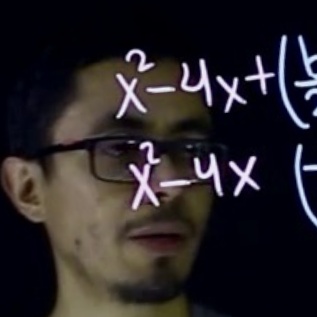 x² - 4x + (b
x² - 4x (